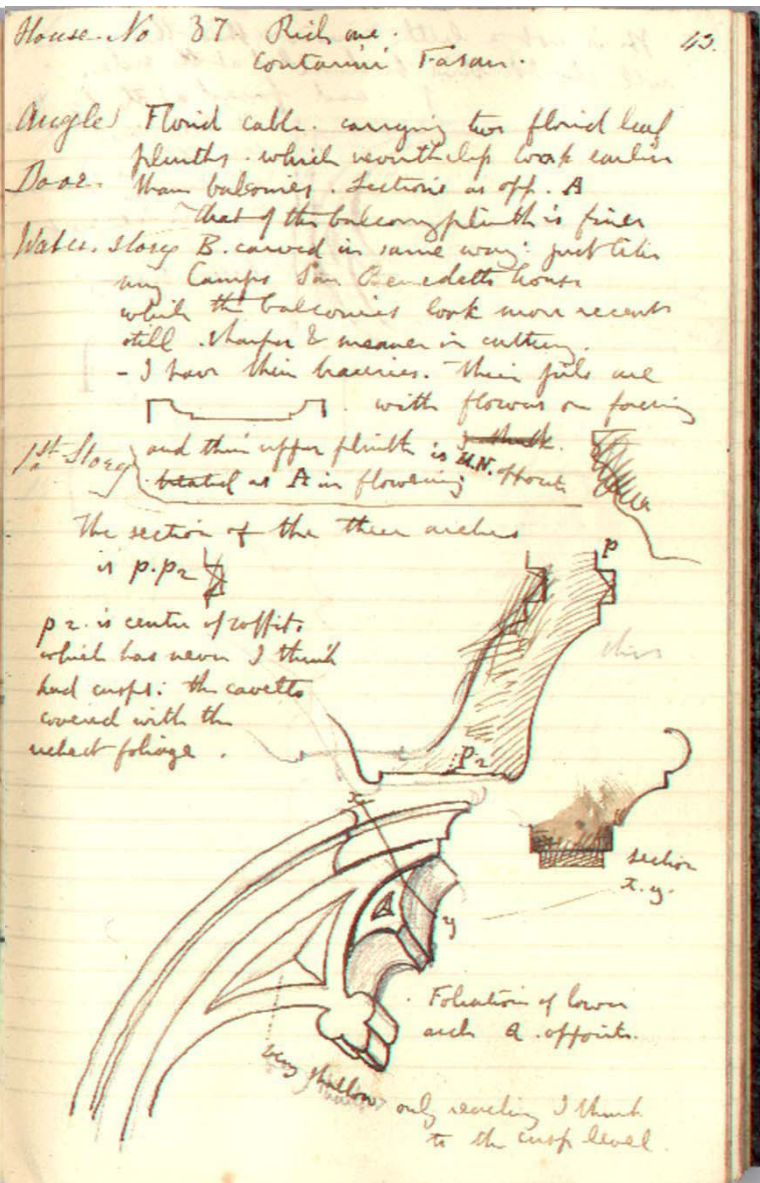 House No 37 Rich one. 43.
Contarini Fasan.
Angle Florid cable. carrying two florid leaf
plinths. which nevertheless look earlier
Door. than balconies. Sections as opp. A
that of the balcony plinth is finer
Water. story B. carved in same way: just like
my Campo San Benedetto house
which the balconies look more recent
still. sharper & meaner in cutting.
- I have their traceries. Their pils are
with flowers on facing
1st Story and their upper plinth is
treated as A in flowering opposite
The section of the their arches
is p.p2
p
p2. is centre of soffit.
which has never I think
had cusps: the cavetto
covered with the
richest foliage.
p2
x
section
x.y.
y
Foliation of lower
arch a. opposite.
very shallow only reaching I think
to the cusp level.